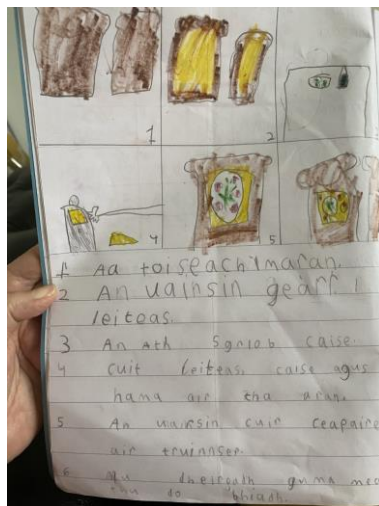 1
2
4
5
1 Aa toiseach 1 maran.
2 An uairsin gearr i
leiteas.
3 An ath sgriob caise.
4 cuit leiteas, caise agus
hama air tha aran.
5 An uairsin cuir ceapaire
air truinnser.
6 Mu dheireadh
thu do bhiadh.